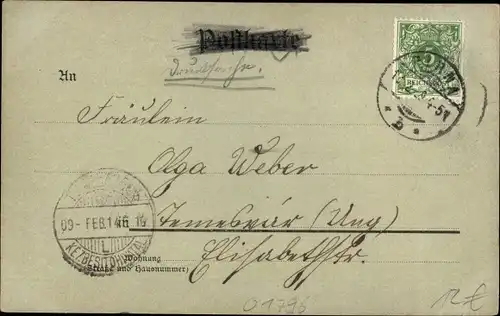 Postkarte
Drucksache.
An
Fräulein
Olga Weber
in Temesvár (Ung)
Elisabethstr.
Wohnung
(Straße und Hausnummer)
09- FEB 14
KÉZBESITŐHIVATAL
L
REICHSPOST
5
O1796